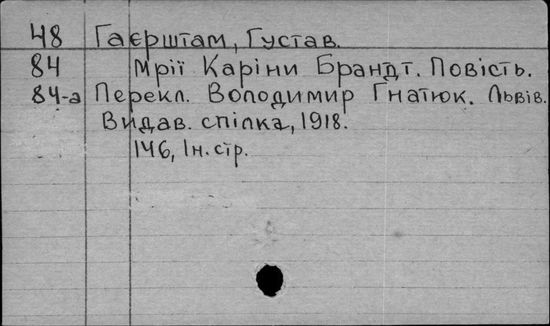 48 Гаєрштам, Густав.
84 Мрії Каріни Брандт. Повість.
84-а Перекл. Володимир Гнатюк. Львів.
Видав. спілка, 1918.
146, Iн. стр.